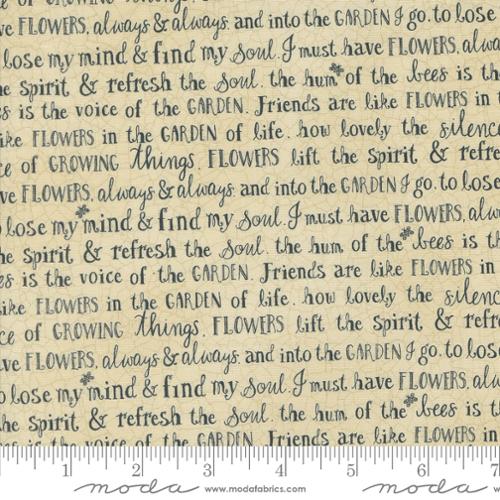 of GROWING things.
ve FLOWERS, always & always. and into the GARDEN I go. to lose
lose my mind & find my soul. I must have FLOWERS, alwa
he spirit & refresh the soul. the hum of the bees is th
es is the voice of the GARDEN. Friends are like FLOWERS in t
ike FLOWERS in the GARDEN of life. how lovely the silence
ce of GROWING things. FLOWERS lift the spirit & refre
ve FLOWERS, always & always. and into the GARDEN I go. to lose
o lose my mind & find my soul. I must have FLOWERS, alw
he spirit & refresh the soul. the hum of the bees is th
es is the voice of the GARDEN. Friends are like FLOWERS in
ike FLOWERS in the GARDEN of life. how lovely the silenc
ce of GROWING things. FLOWERS lift the spirit & refr
ve FLOWERS, always & always. and into the GARDEN I go. to los
o lose my mind & find my soul. I must have FLOWERS, alw
he spirit & refresh the soul. the hum of the bees is th
is the voice of the GARDEN. Friends are like FLOWERS in
1 2 3 4 5 6 7
moda www.modafabrics.com moda www.modafabrics.com moda